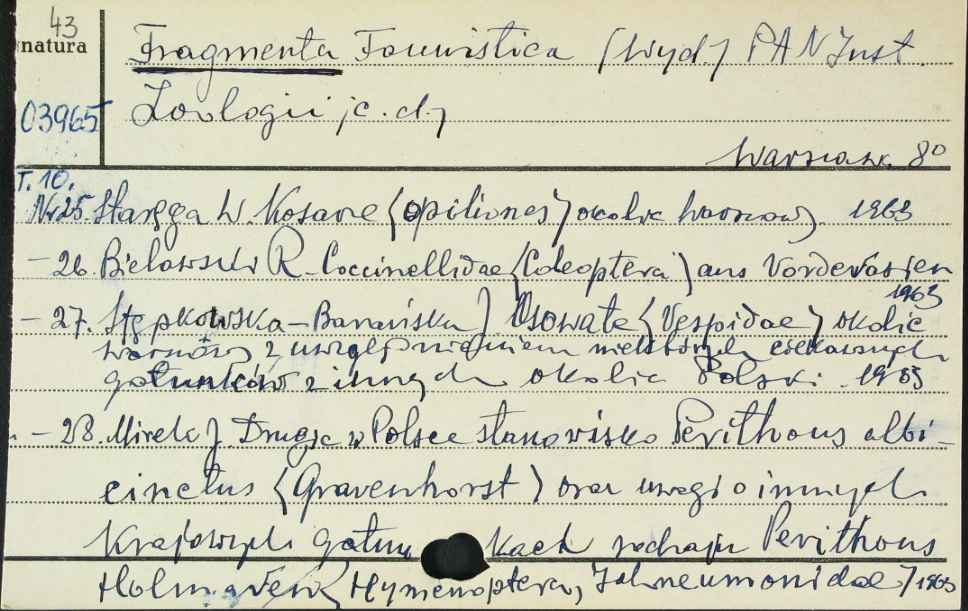 43
natura
Fragmenta Faunistica (Wyd.) PAN Inst.
03965
Zoologii (c.d.)
Warszaw. 8°
T. 10.
Nr 25. Staręga W. Kosarze (Opiliones) okolic Warszawy 1963
- 26. Bielawski R. Coccinellidae (Coleoptera) aus Vorderasien
1963
- 27. Stępkowska-Banańska J. Osowate (Vespidae) okolic
Warszawy z uwzględnieniem niektórych ciekawych
gatunków z innych okolic Polski. 1963
- 28. Mirek J. Drugie w Polsce stanowisko Perithous albi-
cinctus (Gravenhorst) oraz uwagi o innych
Krajowych gatun kach rodzaju Perithous
Holmgren (Hymenoptera, Ichneumonidae) 1963